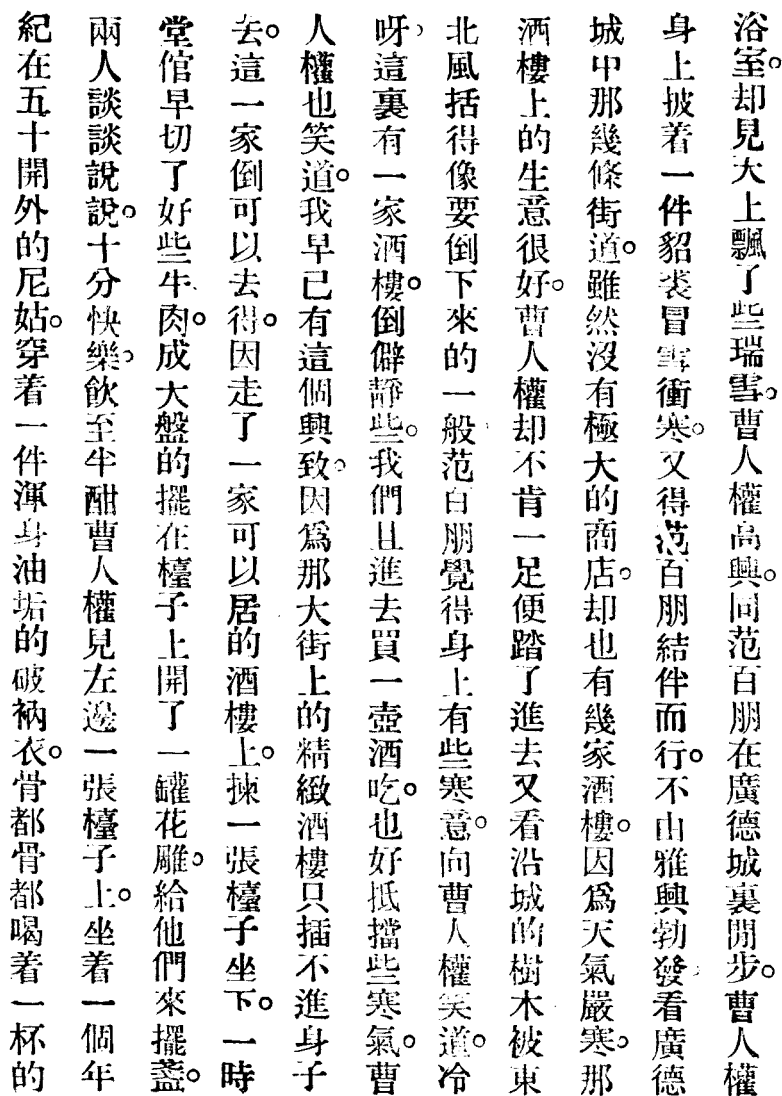 浴室。却見大上飄了些瑞雪。曹人權高興。同范百朋在廣德城裏閒步。曹人權
身上披着一件貂裘冒雪衝寒。又得范百朋結伴而行。不由雅興勃發看廣德
城中那幾條街道。雖然沒有極大的商店。却也有幾家酒樓。因爲天氣嚴寒。那
酒樓上的生意很好。曹人權却不肯一足便踏了進去又看沿城的樹木被東
北風括得像要倒下來的一般范百朋覺得身上有些寒意。向曹人權笑道。冷
呀，這裏有一家酒樓。倒僻靜些。我們且進去買一壺酒吃。也好抵擋些寒氣。曹
人權也笑道。我早已有這個興致。因爲那大街上的精緻酒樓只插不進身子
去。這一家倒可以去得。因走了一家可以居的酒樓上。揀一張檯子坐下。一時
堂倌早切了好些牛肉。成大盤的擺在檯子上開了一罐花雕。給他們來擺盞。
兩人談談說說。十分快樂。飲至半酣曹人權見左邊一張檯子上。坐着一個年
紀在五十開外的尼姑。穿着一件渾身油垢的破衲衣。骨都骨都喝着一杯的